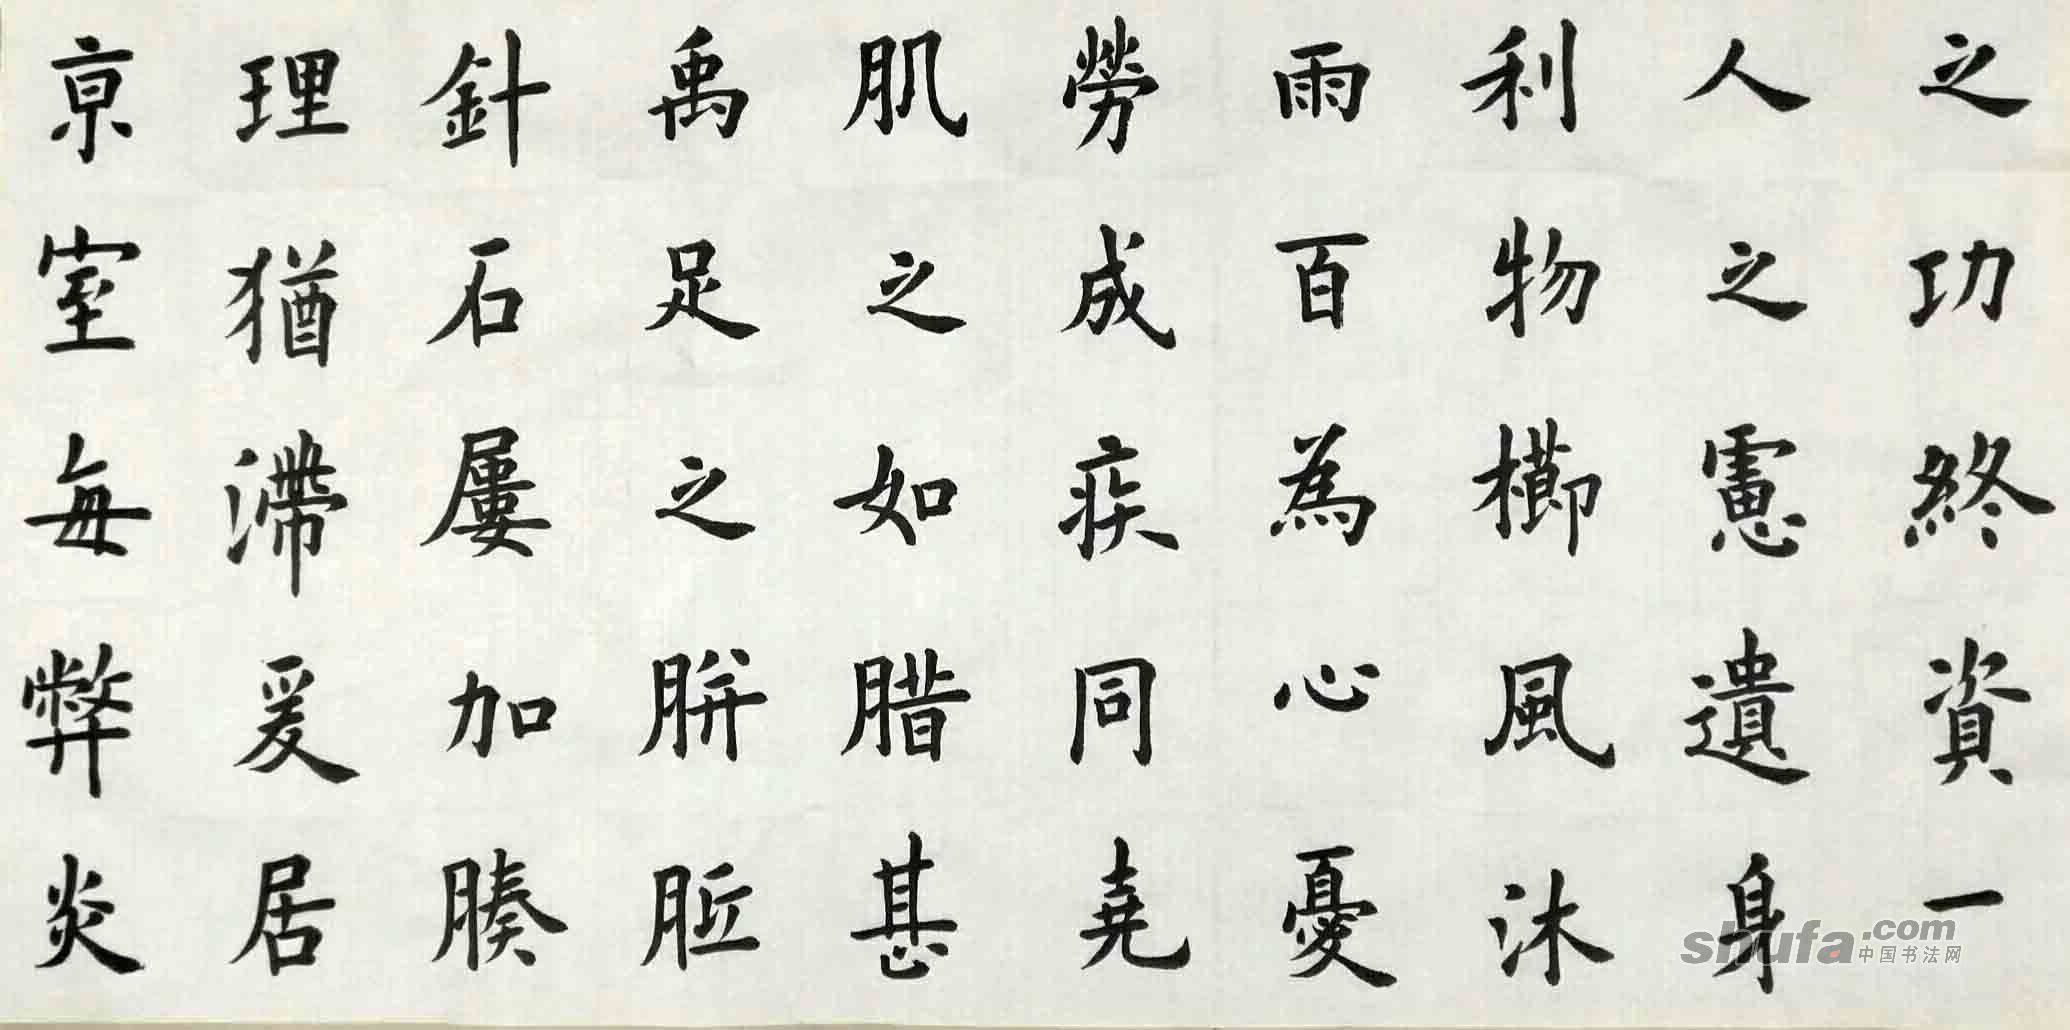 之功終資一
人之慮遺身
利物櫛風沐
雨百為心憂
勞成疾同堯
肌之如腊甚
禹足之胼胝
針石屢加腠
理猶滯爰居
京室每弊炎
shufa.com
中国书法网